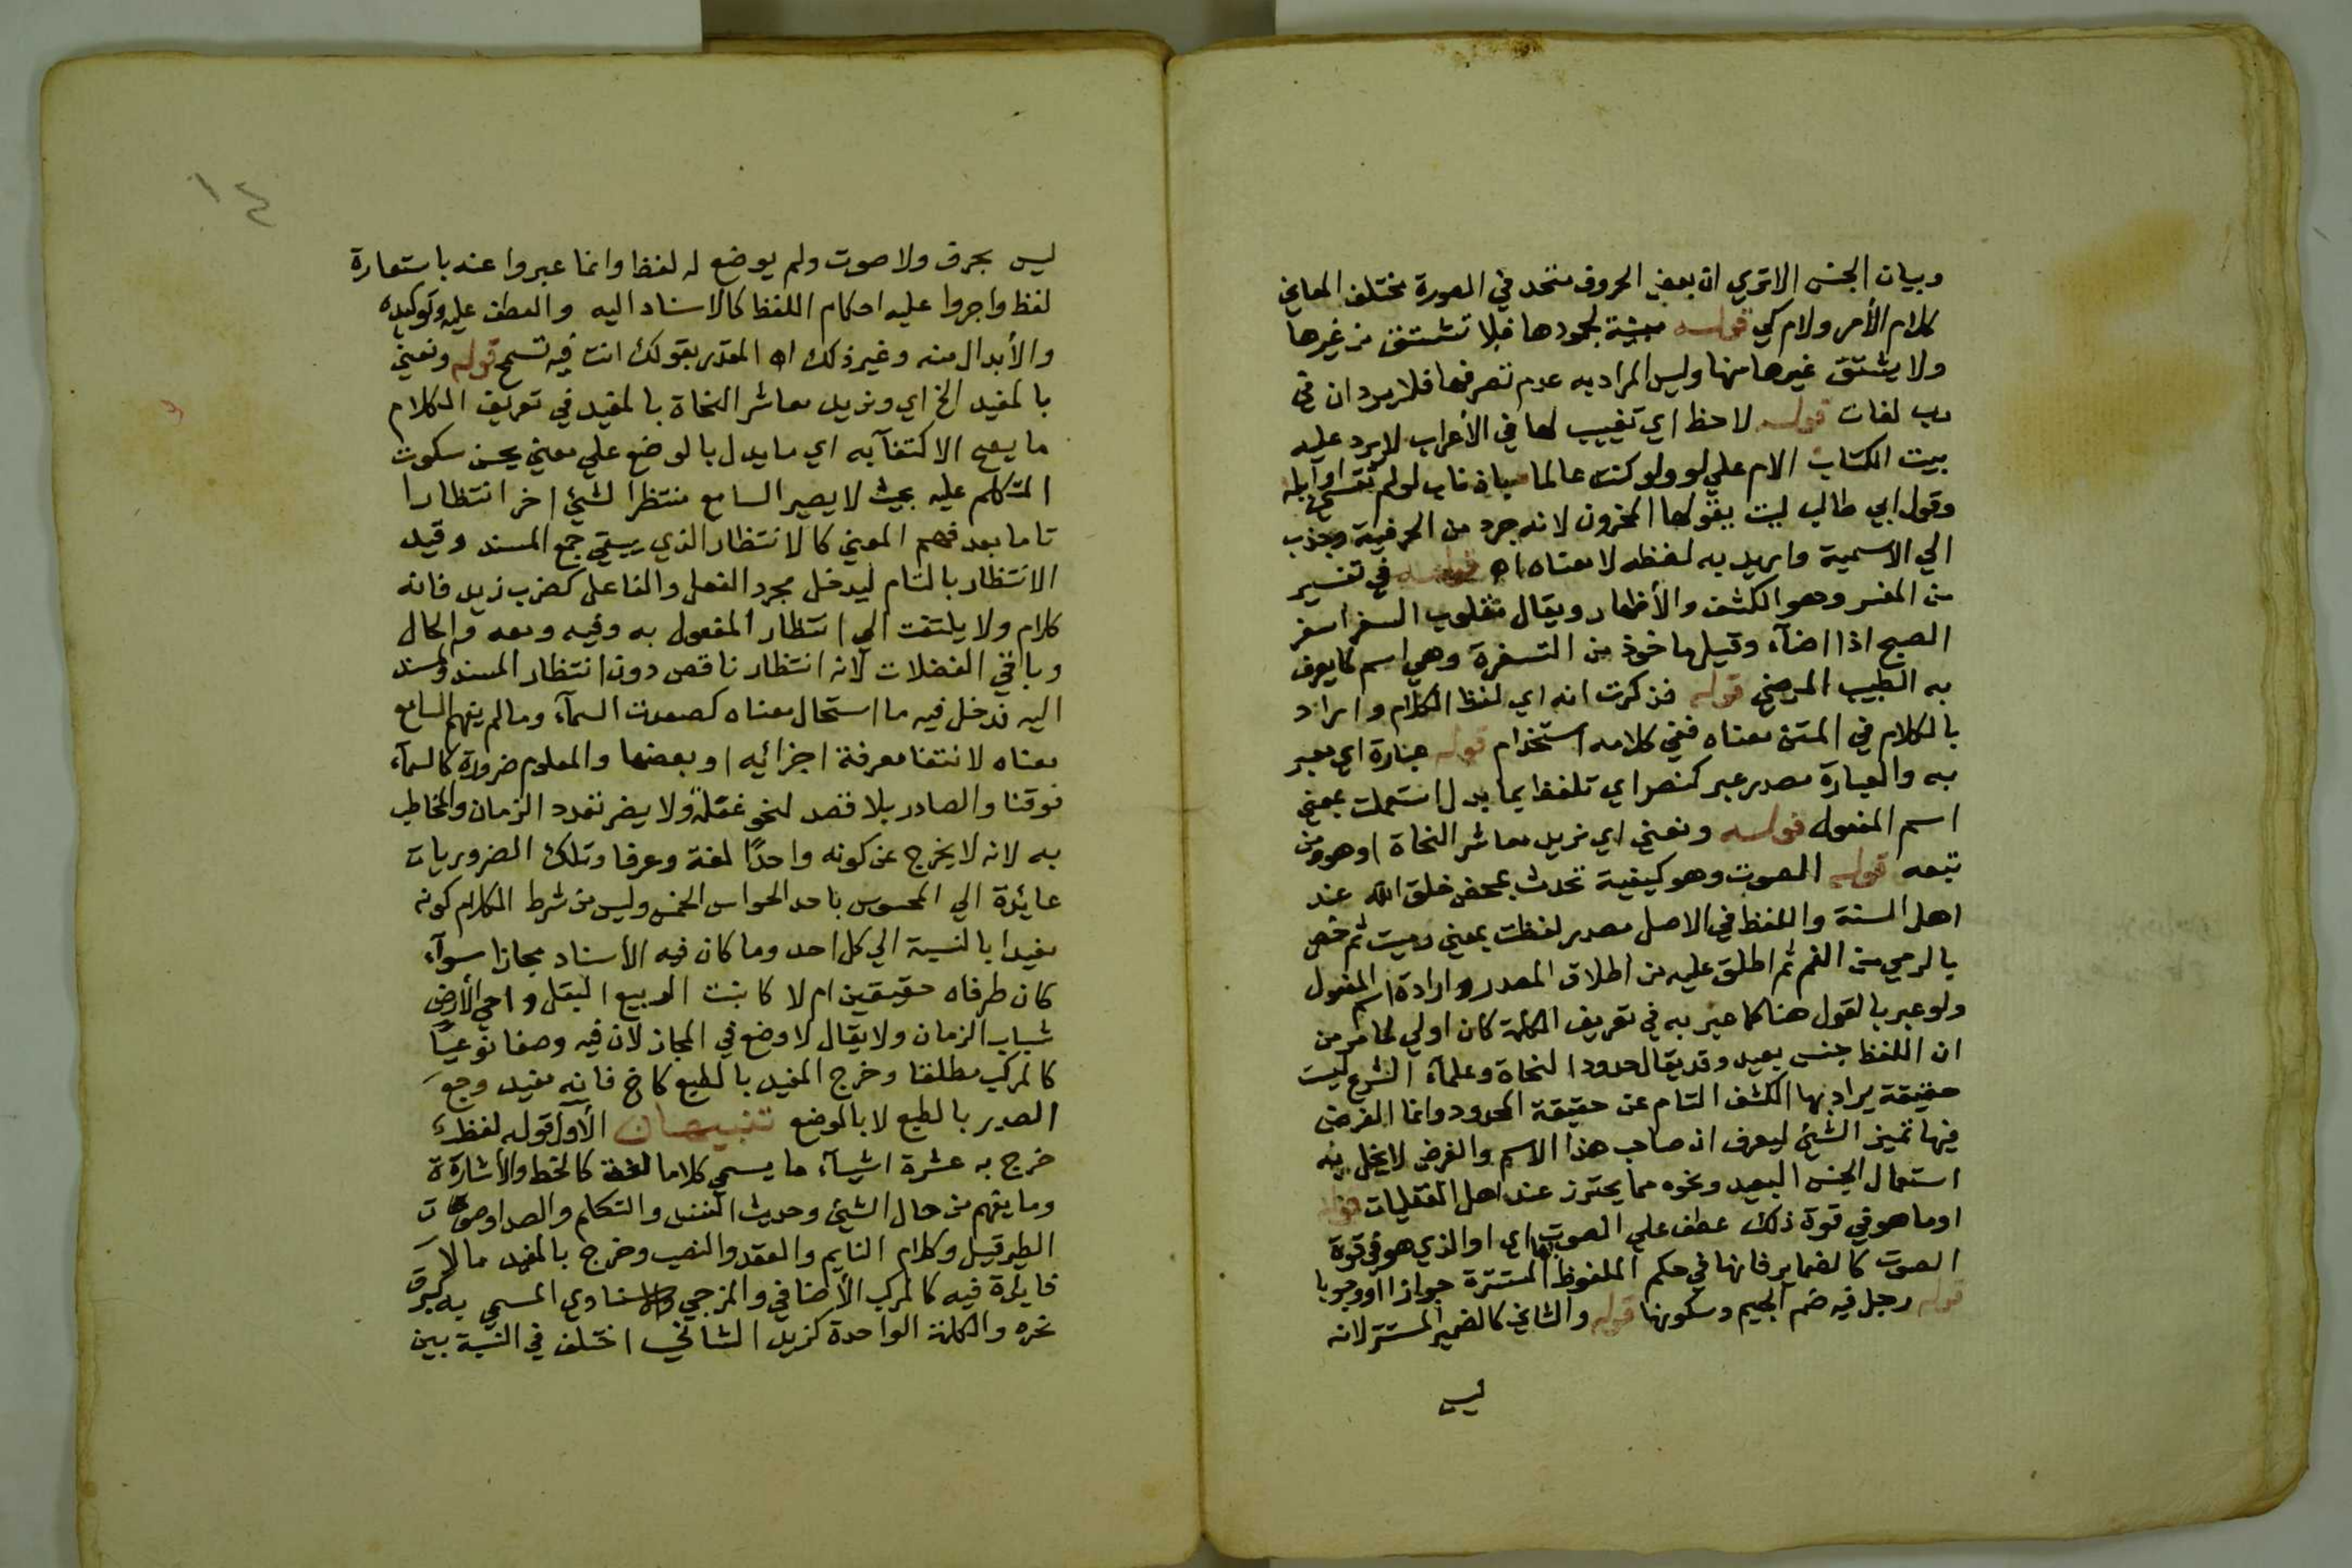 وبيان الجنس الاتري ان بعض الحروف متحد في الصورة مختلف المعاني
كلام الأمر ولام كي قوله مبنية لجمودها فلا تشتق من غيرها
ولا يشتق غيرها منها وليس المراد به عدم تصرفها فلا يرد ان في
رب لغات قوله لاحظ اي نصيب لها في الأعراب لا يرد عليه
بيت الكتاب الام علي لو ولو كنت عالما باذناب لو لم تفتني اوايله
وقول ابي طالب ليت يقولها المحزون لانه جرد من الحرفية وجذب
الي الاسمية واريد به لفظه لا معناه اه قوله في تفسير
من الفسر وهو الكشف والأظهار ويقال مقلوب السفر اسفر
الصبح اذا اضآء وقيل ماخوذ من التفسرة وهي اسم لما يعرف
به الطبيب المرض قوله فذكرت انه اي لفظ الكلام واراد
بالكلام في المتن معناه ففي كلامه استخدام قوله عبارة اي معبر
به والعبارة مصدر عبر كنصر اي تلفظ بما يدل استعملت بمعني
اسم المفعول قوله ونعني اي نريد معاشر النحاة او هو ومن
تبعه قوله الصوت وهو كيفية تحدث بمحض خلق الله عند
اهل السنة واللفظ في الاصل مصدر لفظت بمعني رميت ثم خص
بالرمي من الفم ثم اطلق عليه من اطلاق المصدر وارادة اسم المفعول
ولو عبر بالقول هنا كما عبر به في تعريف الكلمة كان اولي لما مر من
ان اللفظ جنس بعيد وقد يقال حدود النحاة وعلمآء الشرع ليست
حقيقة يراد بها الكشف التام عن حقيقة المحدود وانما الغرض
فيها تميز الشئ ليعرف ان صاحب هذا الاسم والغرض لا يخل به
استعمال الجنس البعيد ونحوه مما يحترز عند اهل العقليات قوله
اوما هو في قوة ذلك عطف علي الصوت اي او الذي هو في قوة
الصوت كالضماير فانها في حكم الملفوظ بها المستترة جوازا او وجوبا
قوله رجل فيه ضم الجيم وسكونها قوله والثاني كالضمير المستتر لانه
ليس
١٤
ليس بحرف ولا صوت ولم يوضع له لفظ وانما عبروا عنه باستعارة
لفظ واجروا عليه احكام اللفظ كالاسناد اليه والعطف عليه وتوكيده
والأبدال منه وغير ذلك اه المقدر بقولك انت فيه تسمح قوله ونعني
بالمفيد الخ اي ونريد معاشر النحاة بالمفيد في تعريف الكلام
ما يصح الاكتفآء به اي ما يدل بالوضع علي معني يحسن سكوت
المتكلم عليه بحيث لا يصير السامع منتظرا لشئ اخر انتظارا
تاما بعد فهم المعني كالانتظار الذي يبقي مع المسند وقيد
الانتظار بالتام ليدخل مجرد الفعل والفاعل كضرب زيد فانه
كلام ولا يلتفت الي انتظار المفعول به وفيه ومعه والحال
وباقي الفضلات لانه انتظار ناقص دون انتظار المسند والمسند
اليه فدخل فيه ما استحال معناه كصعدت السمآء ومالم يفهم السامع
معناه لانتفا معرفة اجزائيه او بعضها والمعلوم ضرورة كالسمآء
فوقنا والصادر بلا قصد لنحو غفلة ولا يضر تعدد الزمان والمخاطب
به لانه لا يخرج عن كونه واحدًا لغة وعرفا وتلك الضروريات
عائدة الي المحسوس باحد الحواس الخمس وليس من شرط الكلام كونه
مفيدا بالنسبة الي كل احد وما كان فيه الأسناد مجازا سوآء
كان طرفاه حقيقين ام لا كانبت الربيع البقل واحي الأرض
شباب الزمان ولا يقال لا وضع في المجاز لان فيه وضعا نوعيًا
كالمركب مطلقا وخرج المفيد بالطبع كاخ فانه مفيد وجع
الصدر بالطبع لا بالوضع تنبيهان الأول قوله لفظ
خرج به عشرة اشيآء ما يسمي كلاما لغة كالخط والأشارة
وما يفهم من حال الشئ وحديث النفس والتكلم والصدا وصوت
الطير قيل وكلام النايم والعقد والنصب وخرج بالمفيد مالا
فايدة فيه كالمركب الأضافي والمزجي والاسنادي المسمي به كبرق
نحره والكلمة الواحدة كزيد الثاني اختلف في النسبة بين